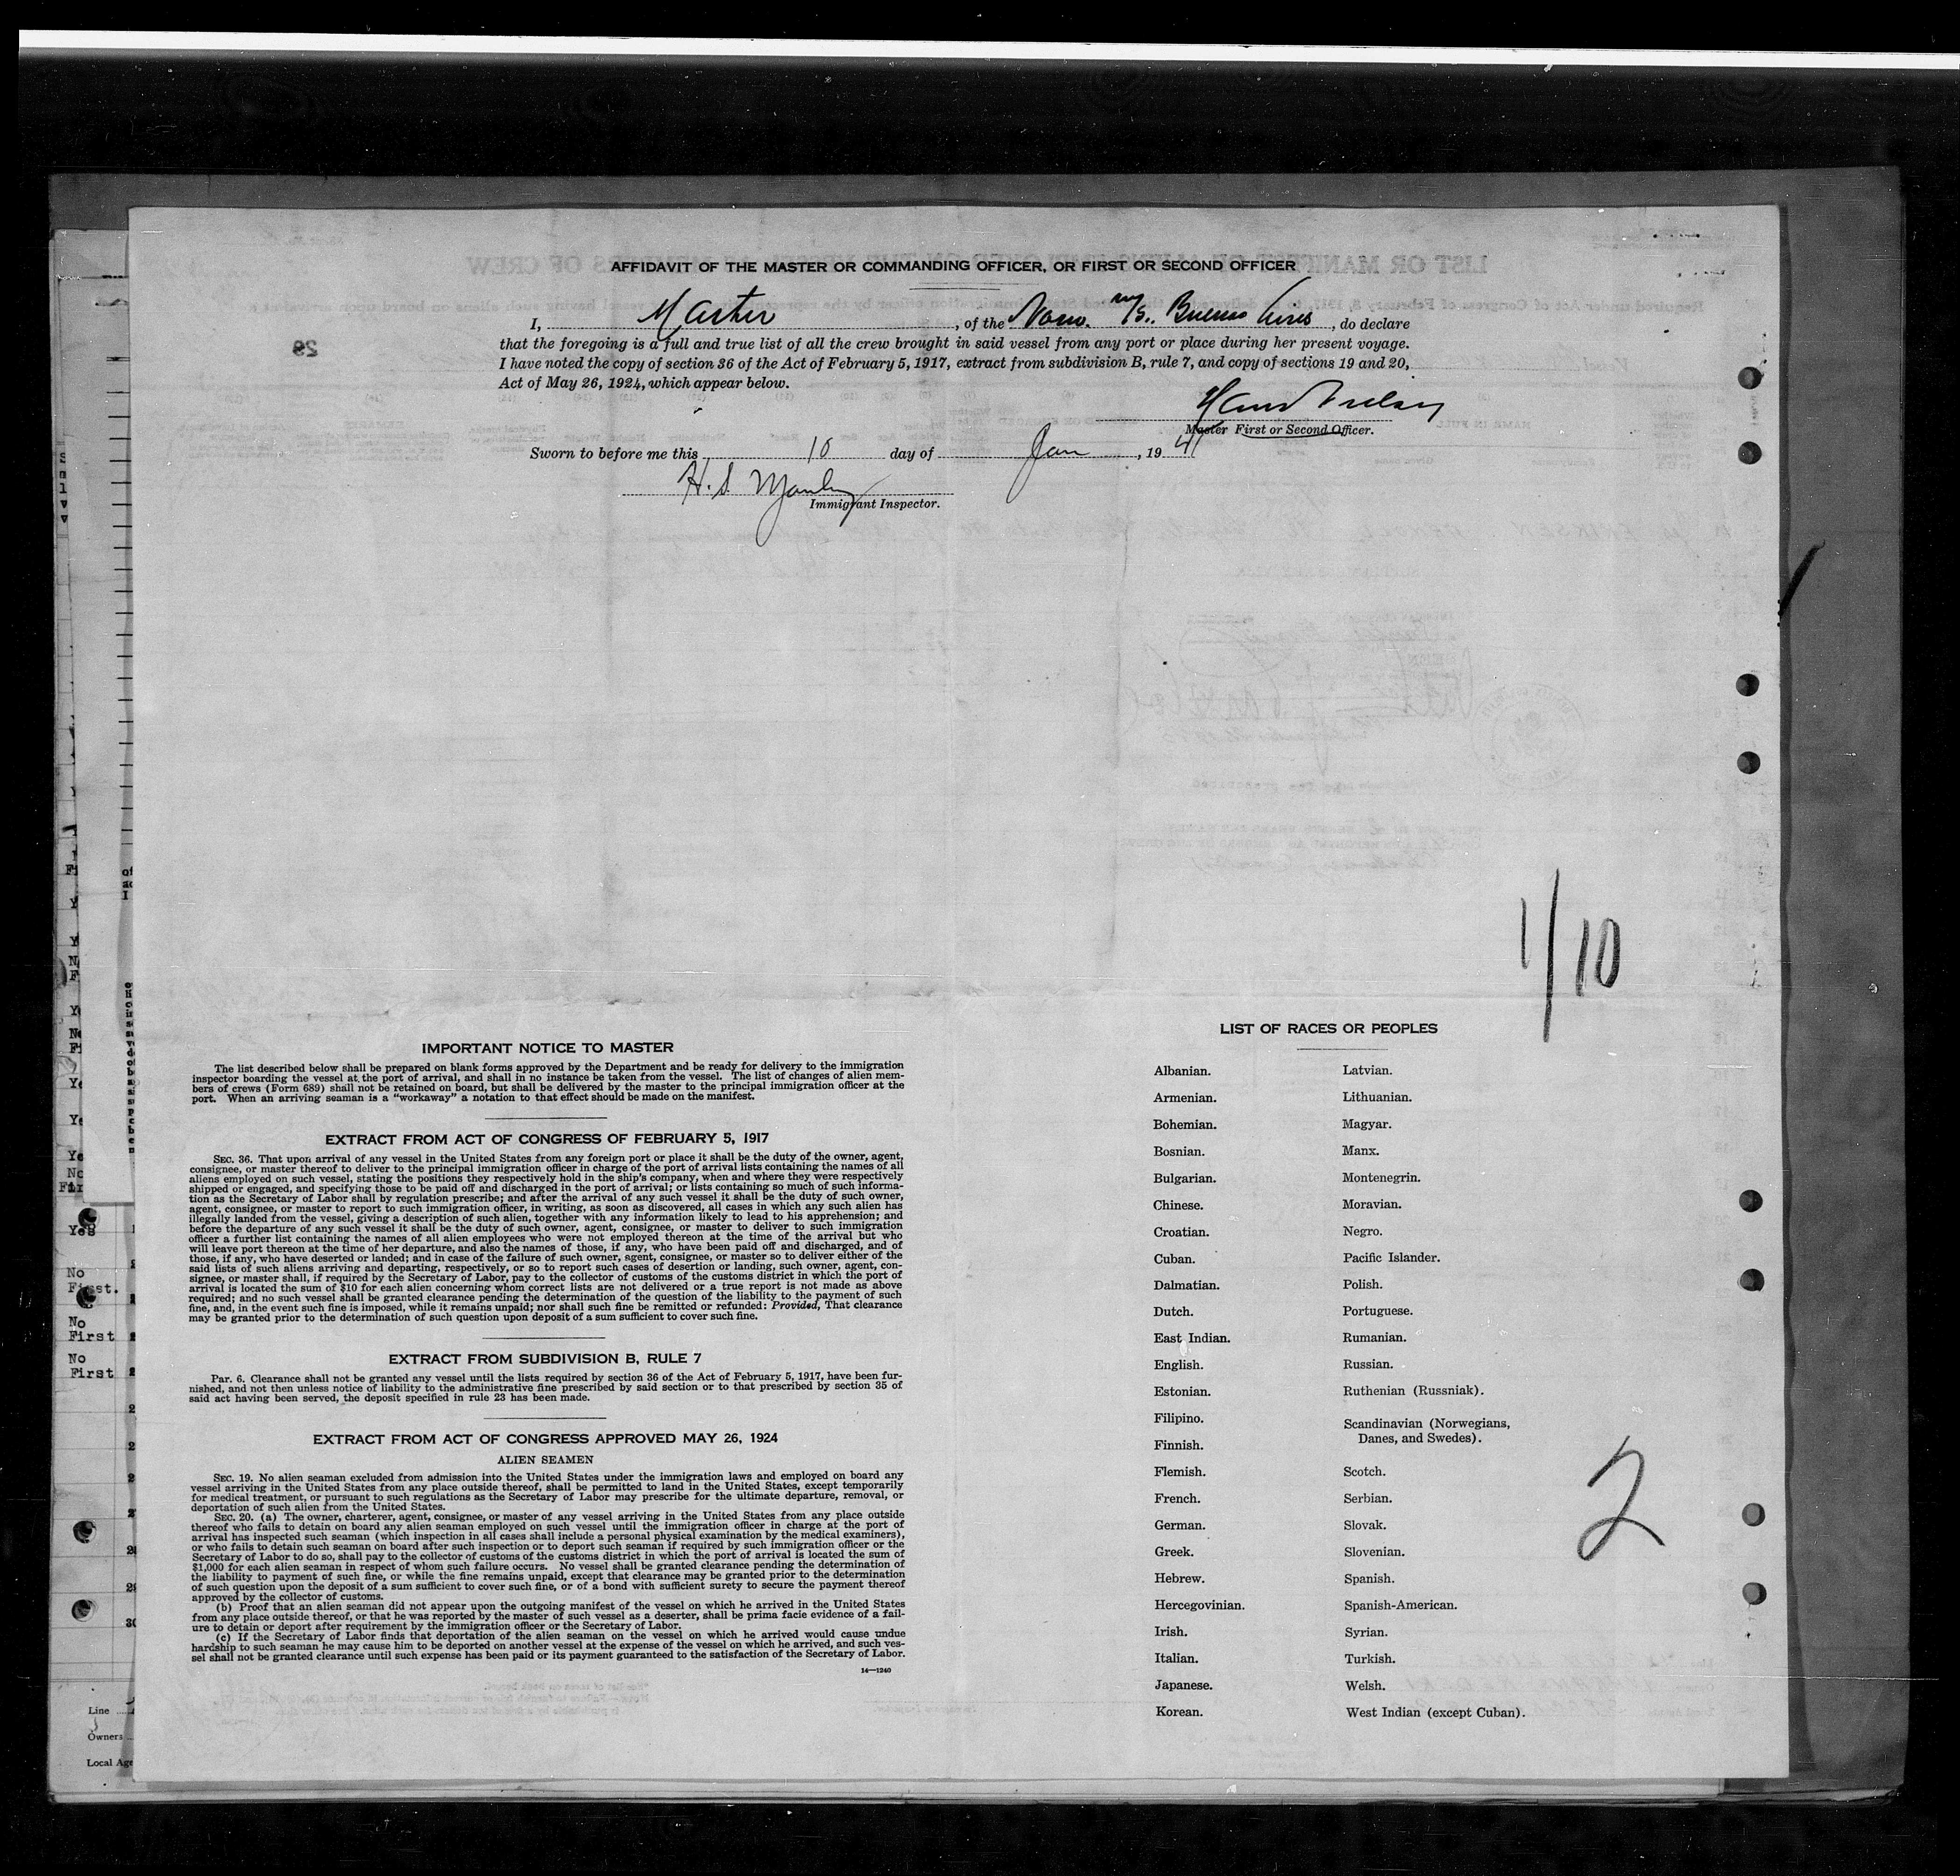 AFFIDAVIT OF THE MASTER OR COMMANDING OFFICER, OR FIRST OR SECOND OFFICER
I, Master, of the Norw. M/S. Buenos Aires, do declare
that the foregoing is a full and true list of all the crew brought in said vessel from any port or place during her present voyage.
I have noted the copy of section 36 of the Act of February 5, 1917, extract from subdivision B, rule 7, and copy of sections 19 and 20,
Act of May 26, 1924, which appear below.
Master First or Second Officer.
Sworn to before me this 10 day of Jan, 1941
H. S.
Immigrant Inspector.
29
1/10
IMPORTANT NOTICE TO MASTER
The list described below shall be prepared on blank forms approved by the Department and be ready for delivery to the immigration
inspector boarding the vessel at the port of arrival, and shall in no instance be taken from the vessel. The list of changes of alien mem-
bers of crews (Form 689) shall not be retained on board, but shall be delivered by the master to the principal immigration officer at the
port. When an arriving seaman is a "workaway" a notation to that effect should be made on the manifest.
EXTRACT FROM ACT OF CONGRESS OF FEBRUARY 5, 1917
SEC. 36. That upon arrival of any vessel in the United States from any foreign port or place it shall be the duty of the owner, agent,
consignee, or master thereof to deliver to the principal immigration officer in charge of the port of arrival lists containing the names of all
aliens employed on such vessel, stating the positions they respectively hold in the ship's company, when and where they were respectively
shipped or engaged, and specifying those to be paid off and discharged in the port of arrival; or lists containing so much of such informa-
tion as the Secretary of Labor shall by regulation prescribe; and after the arrival of any such vessel it shall be the duty of such owner,
agent, consignee, or master to report to such immigration officer, in writing, as soon as discovered, all cases in which any such alien has
illegally landed from the vessel, giving a description of such alien, together with any information likely to lead to his apprehension; and
before the departure of any such vessel it shall be the duty of such owner, agent, consignee, or master to deliver to such immigration
officer a further list containing the names of all alien employees who were not employed thereon at the time of the arrival but who
will leave port thereon at the time of her departure, and also the names of those, if any, who have been paid off and discharged, and of
those, if any, who have deserted or landed; and in case of the failure of such owner, agent, consignee, or master so to deliver either of the
said lists of such aliens arriving and departing, respectively, or so to report such cases of desertion or landing, such owner, agent, con-
signee, or master shall, if required by the Secretary of Labor, pay to the collector of customs of the customs district in which the port of
arrival is located the sum of $10 for each alien concerning whom correct lists are not delivered or a true report is not made as above
required; and no such vessel shall be granted clearance pending the determination of the question of the liability to the payment of such
fine, and, in the event such fine is imposed, while it remains unpaid; nor shall such fine be remitted or refunded: Provided, That clearance
may be granted prior to the determination of such question upon deposit of a sum sufficient to cover such fine.
EXTRACT FROM SUBDIVISION B, RULE 7
Par. 6. Clearance shall not be granted any vessel until the lists required by section 36 of the Act of February 5, 1917, have been fur-
nished, and not then unless notice of liability to the administrative fine prescribed by said section or to that prescribed by section 35 of
said act having been served, the deposit specified in rule 23 has been made.
EXTRACT FROM ACT OF CONGRESS APPROVED MAY 26, 1924
ALIEN SEAMEN
SEC. 19. No alien seaman excluded from admission into the United States under the immigration laws and employed on board any
vessel arriving in the United States from any place outside thereof, shall be permitted to land in the United States, except temporarily
for medical treatment, or pursuant to such regulations as the Secretary of Labor may prescribe for the ultimate departure, removal, or
deportation of such alien from the United States.
SEC. 20. (a) The owner, charterer, agent, consignee, or master of any vessel arriving in the United States from any place outside
thereof who fails to detain on board any alien seaman employed on such vessel until the immigration officer in charge at the port of
arrival has inspected such seaman (which inspection in all cases shall include a personal physical examination by the medical examiners),
or who fails to detain such seaman on board after such inspection or to deport such seaman if required by such immigration officer or the
Secretary of Labor to do so, shall pay to the collector of customs of the customs district in which the port of arrival is located the sum of
$1,000 for each alien seaman in respect of whom such failure occurs. No vessel shall be granted clearance pending the determination of
the liability to payment of such fine, or while the fine remains unpaid, except that clearance may be granted prior to the determination
of such question upon the deposit of a sum sufficient to cover such fine, or of a bond with sufficient surety to secure the payment thereof
approved by the collector of customs.
(b) Proof that an alien seaman did not appear upon the outgoing manifest of the vessel on which he arrived in the United States
from any place outside thereof, or that he was reported by the master of such vessel as a deserter, shall be prima facie evidence of a fail-
ure to detain or deport after requirement by the immigration officer or the Secretary of Labor.
(c) If the Secretary of Labor finds that deportation of the alien seaman on the vessel on which he arrived would cause undue
hardship to such seaman he may cause him to be deported on another vessel at the expense of the vessel on which he arrived, and such ves-
sel shall not be granted clearance until such expense has been paid or its payment guaranteed to the satisfaction of the Secretary of Labor.
14—1240
LIST OF RACES OR PEOPLES
Albanian.
Armenian.
Bohemian.
Bosnian.
Bulgarian.
Chinese.
Croatian.
Cuban.
Dalmatian.
Dutch.
East Indian.
English.
Estonian.
Filipino.
Finnish.
Flemish.
French.
German.
Greek.
Hebrew.
Hercegovinian.
Irish.
Italian.
Japanese.
Korean.
Latvian.
Lithuanian.
Magyar.
Manx.
Montenegrin.
Moravian.
Negro.
Pacific Islander.
Polish.
Portuguese.
Rumanian.
Russian.
Ruthenian (Russniak).
Scandinavian (Norwegians,
Danes, and Swedes).
Scotch.
Serbian.
Slovak.
Slovenian.
Spanish.
Spanish-American.
Syrian.
Turkish.
Welsh.
West Indian (except Cuban).
2
Yes
No
First.
No
First
No
First
Line
Owners
Local Age